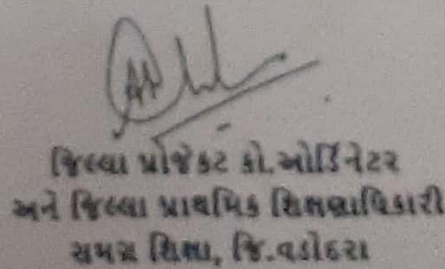 જિલ્લા પ્રોજેકટ કો.ઓર્ડિનેટર
અને જિલ્લા પ્રાથમિક શિક્ષણાધિકારી
સમગ્ર શિક્ષા, જિ.વડોદરા